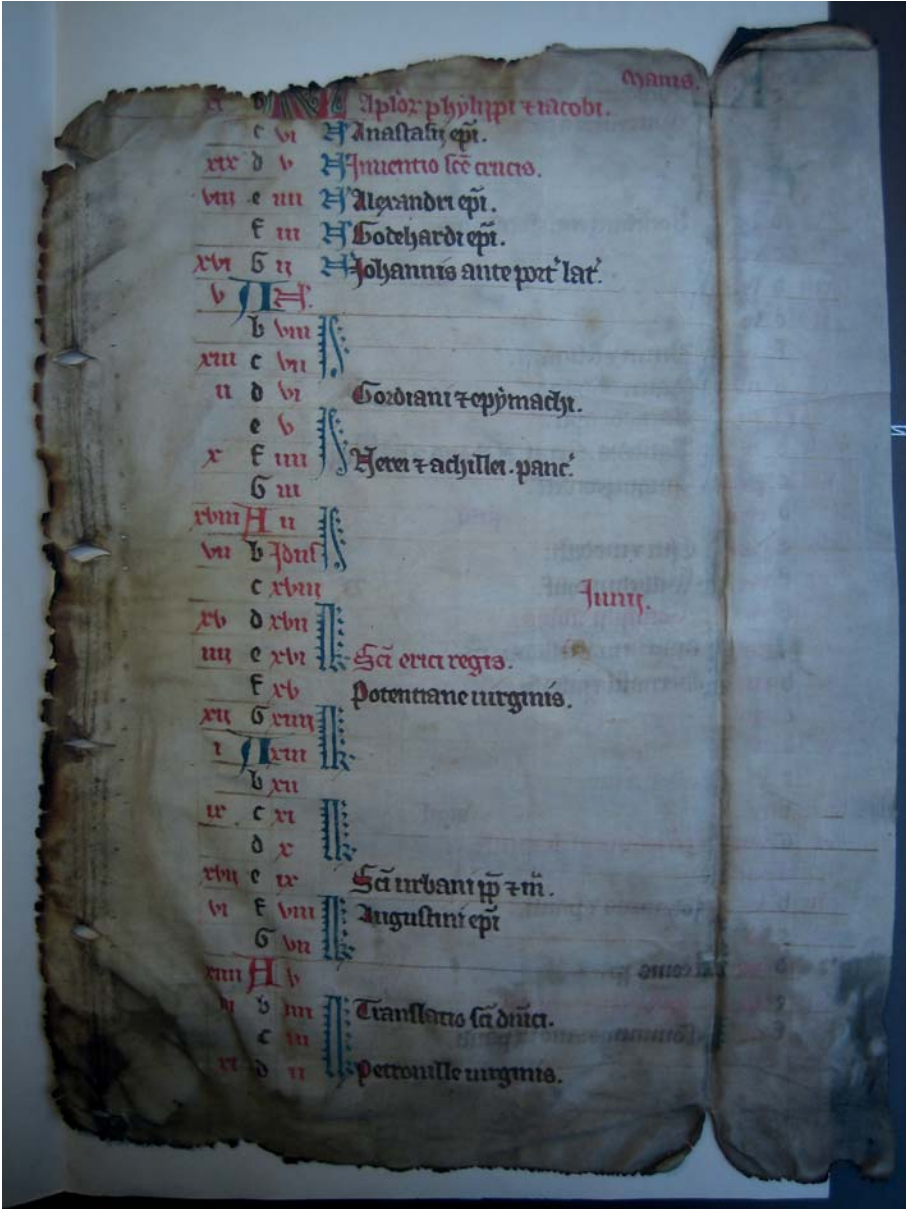 Mayus.
xi b Aplōr phylippi ⁊ iacobi.
c vi N Anastasij ep̄i.
xix d v N Inuentio sc̄e crucis.
viii e iiii N Alexandri ep̄i.
f iii N Godehardi ep̄i.
xvi G ii N Johannis ante port' lat'.
v A N'.
b viii
xiii c vii
ii d vi Gordiani ⁊ epymachi.
e v
x f iiii Nerei ⁊ achillei. panc'.
G iii
xviii A ii
vii b Idus
c xviii Junij.
xv d xvii
iiii e xvi Sc̄i erici regis.
f xv Potentiane uirginis.
xii G xiiii
i A xiii
b xii
ix c xi
d x
xvii e ix Sc̄i urbani pp̄ ⁊ m̄.
vi f viii Augustini ep̄i
G vii
xiiii A v
b iiii Translatio sc̄i dn̄ici.
c iii
xi d ii Petronille uirginis.